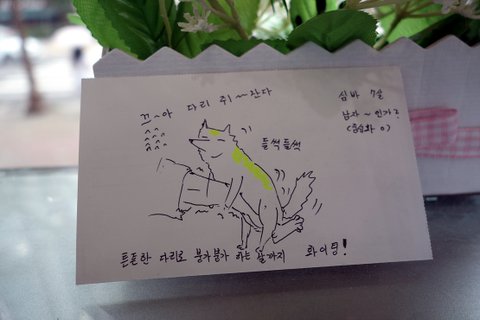 끄~아 다리 쥐~잔다
심바 7살
남자~인가?
(중성화 O)
들썩들썩
튼튼한 다리로 붕가붕가 하는 날까지 화이팅!